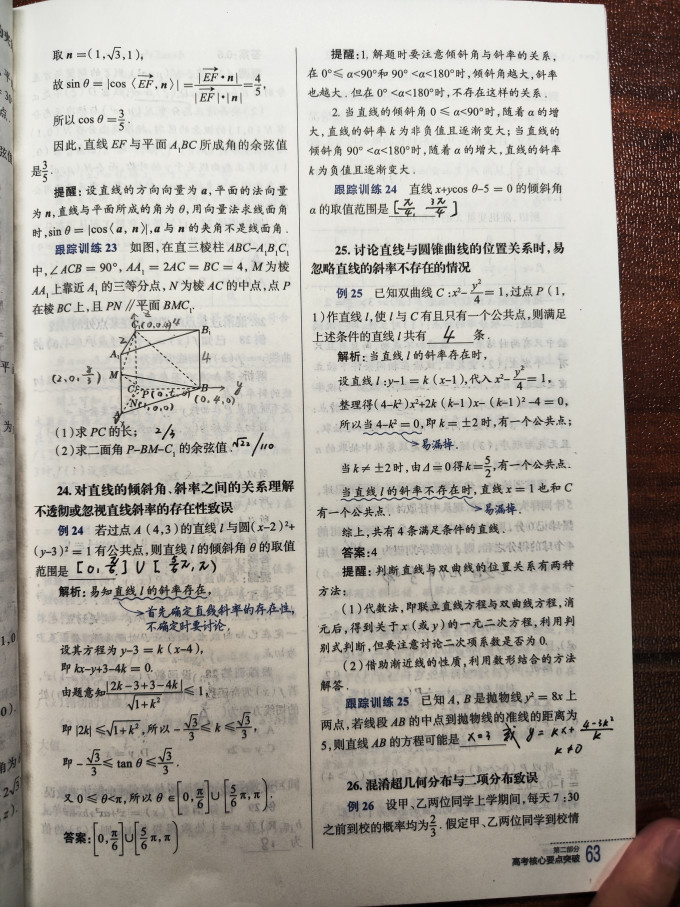 取n=(1,√3,1),
故 sin θ = |cos〈EF,n〉| = |EF·n| / |EF|·|n| = 4/5,
所以 cos θ = 3/5.
因此,直线 EF 与平面 A₁BC 所成角的余弦值
是3/5.
提醒:设直线的方向向量为 a,平面的法向量
为 n,直线与平面所成的角为 θ,用向量法求线面角
时,sin θ = |cos〈a,n〉|,a 与 n 的夹角不是线面角.
跟踪训练 23 如图,在直三棱柱 ABC-A₁B₁C₁
中,∠ACB = 90°,AA₁ = 2AC = BC = 4,M 为棱
AA₁ 上靠近 A₁ 的三等分点,N 为棱 AC 的中点,点 P
在棱 BC 上,且 PN∥平面 BMC₁.
z
C₁(0,0,4) 4
B₁
2
A₁
4
(2,0,8/3) M
C P(0,
B y
N(1,0,0)
(0,4,0)
A
(1)求 PC 的长; 2/3
(2)求二面角 P-BM-C₁ 的余弦值.
24. 对直线的倾斜角、斜率之间的关系理解
不透彻或忽视直线斜率的存在性致误
例 24 若过点 A(4,3)的直线 l 与圆(x-2)²+
(y-3)² = 1 有公共点,则直线 l 的倾斜角 θ 的取值
范围是 [0,π/6]∪[5/6π,π)
解析:易知直线 l 的斜率存在,
首先确定直线斜率的存在性,
不确定时要讨论.
设其方程为 y-3 = k(x-4),
即 kx-y+3-4k = 0.
由题意知 |2k-3+3-4k| / √(1+k²) ≤ 1,
即 |2k| ≤ √(1+k²),所以 -√3/3 ≤ k ≤ √3/3,
即 -√3/3 ≤ tan θ ≤ √3/3.
又 0 ≤ θ<π,所以 θ ∈ [0,π/6]∪[5/6π,π).
答案:[0,π/6]∪[5/6π,π)
提醒:1. 解题时要注意倾斜角与斜率的关系,
在 0°≤ α<90°和 90° <α<180°时,倾斜角越大,斜率
也越大. 但在 0° <α<180°时,不存在这样的关系.
2. 当直线的倾斜角 0≤ α<90°时,随着 α 的增
大,直线的斜率 k 为非负值且逐渐变大;当直线的
倾斜角 90° <α<180°时,随着 α 的增大,直线的斜率
k 为负值且逐渐变大.
跟踪训练 24 直线 x+ycos θ-5 = 0 的倾斜角
α 的取值范围是 [π/4, 3π/4]
25. 讨论直线与圆锥曲线的位置关系时,易
忽略直线的斜率不存在的情况
例 25 已知双曲线 C:x²-y²/4 = 1,过点 P(1,
1)作直线 l,使 l 与 C 有且只有一个公共点,则满足
上述条件的直线 l 共有 4 条.
解析:当直线 l 的斜率存在时,
设直线 l:y-1 = k(x-1),代入 x²-y²/4 = 1,
整理得(4-k²)x²+2k(k-1)x-(k-1)²-4 = 0,
所以当 4-k² = 0,即 k = ±2 时,有一个公共点;
易漏掉.
当 k≠ ±2 时,由 Δ = 0 得 k=5/2,有一个公共点.
当直线 l 的斜率不存在时,直线 x = 1 也和 C
有一个公共点. 易漏掉.
综上,共有 4 条满足条件的直线.
答案:4
提醒:判断直线与双曲线的位置关系有两种
方法:
(1)代数法,即联立直线方程与双曲线方程,消
元后,得到关于 x(或 y)的一元二次方程,利用判
别式判断,但要注意讨论二次项系数是否为 0.
(2)借助渐近线的性质,利用数形结合的方法
解答.
跟踪训练 25 已知 A,B 是抛物线 y² = 8x 上
两点,若线段 AB 的中点到抛物线的准线的距离为
5,则直线 AB 的方程可能是 x=3 或 y=kx+(4-3k²)/k
k≠0
26. 混淆超几何分布与二项分布致误
例 26 设甲、乙两位同学上学期间,每天 7:30
之前到校的概率均为2/3. 假定甲、乙两位同学到校情
第二部分
高考核心要点突破 63